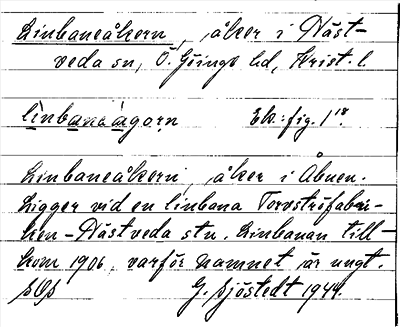 Linbaneåkern, åker i Näst-
veda sn, Ö. Göinge hd, Krist. l.
linbanaågoṛn Ek: fig. 1 18.
Linbaneåkern, åker i Åbuen.
Ligger vid en linbana Torvströfabri-
ken - Nästveda stn. Linbanan till-
kom 1906, varför namnet är ungt.
G. Sjöstedt 1944.